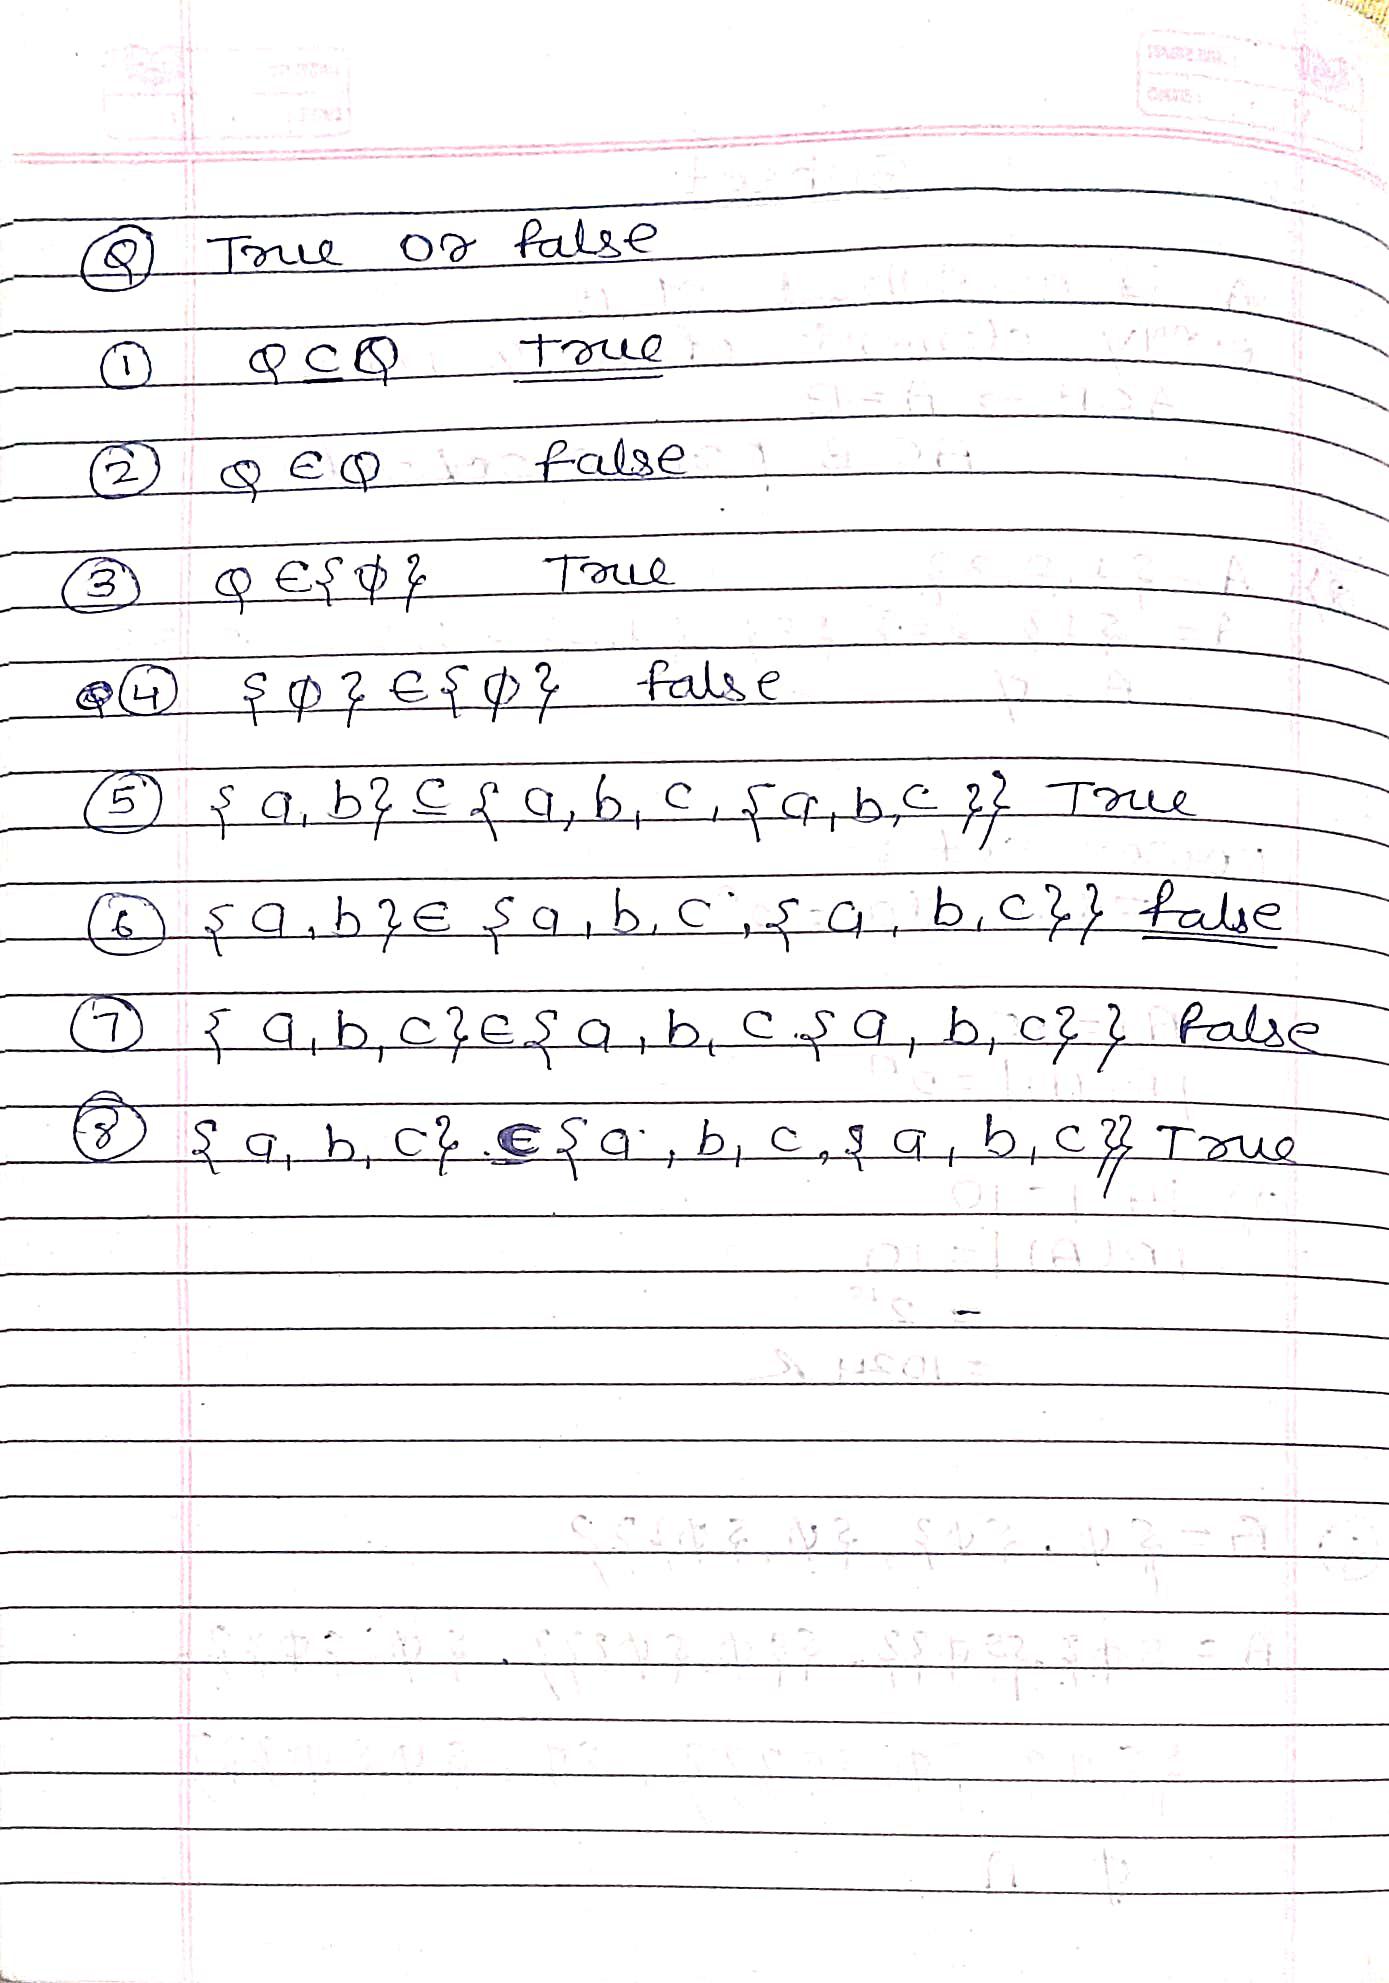 Q True or false
1 φ ⊆ φ true
2 φ ∈ φ false
3 φ ∈ {φ} True
4 {φ} ∈ {φ} false
5 {a, b} ⊆ {a, b, c, {a, b, c}} True
6 {a, b} ∈ {a, b, c, {a, b, c}} false
7 {a, b, c} ∈ {a, b, c {a, b, c}} false
8 {a, b, c} ∈ {a, b, c, {a, b, c}} True